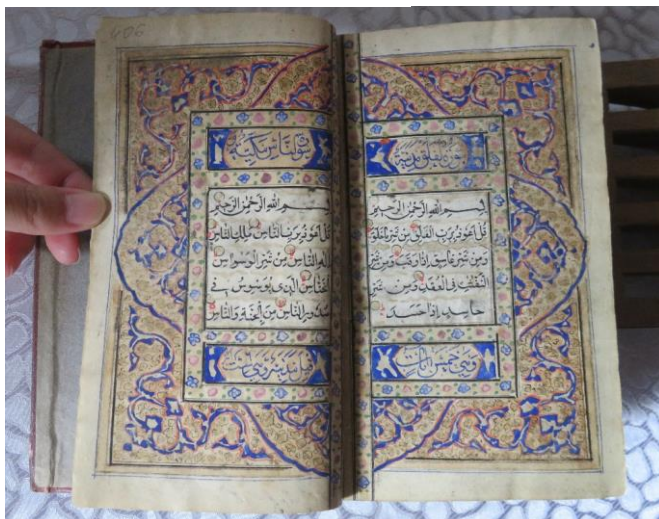 سورة الفلق مدنية
بسم الله الرحمن الرحيم
قل اعوذ برب الفلق من شر ما خلق
ومن شر غاسق اذا وقب ومن شر
النفثت في العقد ومن شر
حاسد اذا حسد
وهي خمس آيات
406
سورة الناس مكية
بسم الله الرحمن الرحيم
قل اعوذ برب الناس ملك الناس
اله الناس من شر الوسواس
الخناس الذي يوسوس في
صدور الناس من الجنة والناس
قيل مدنية وهي ست